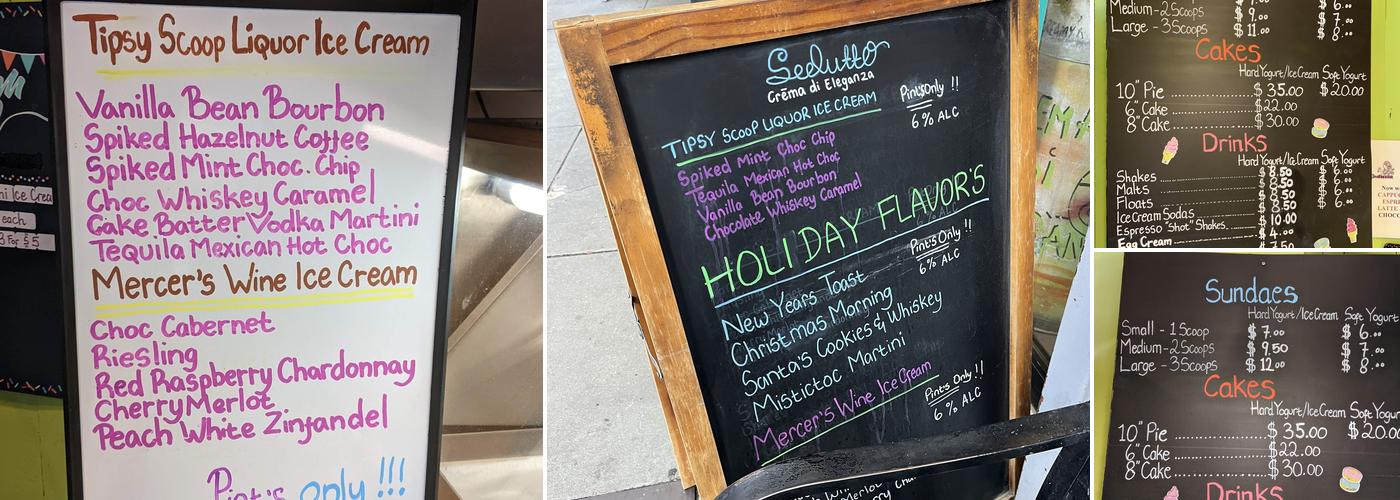 ni Ice Crea
each
3 For $5
Tipsy Scoop Liquor Ice Cream
Vanilla Bean Bourbon
Spiked Hazelnut Coffee
Spiked Mint Choc. Chip
Choc Whiskey Caramel
Cake Batter Vodka Martini
Tequila Mexican Hot Choc
Mercer's Wine Ice Cream
Choc Cabernet
Riesling
Red Raspberry Chardonnay
Cherry Merlot
Peach White Zinfandel
Pint's only !!!
Sedutto
Crēma di Eleganza
TIPSY SCOOP LIQUOR ICE CREAM
Pint's Only !!
6% ALC
Spiked Mint Choc Chip
Tequila Mexican Hot Choc
Vanilla Bean Bourbon
Chocolate Whiskey Caramel
HOLIDAY FLAVOR'S
Pint's Only !!
6% ALC
New Years Toast
Christmas Morning
Santa's Cookies & Whiskey
Mistictoc Martini
Mercer's Wine Ice Cream
Pint's Only !!
6% ALC
Medium-2Scoops $ 9.00
Large - 3Scoops $ 11.00 $ 8.00
Cakes
Hard Yogurt/Ice Cream Soft Yogurt
10" Pie $ 35.00 $ 20.00
6" Cake $ 22.00
8" Cake $ 30.00
Drinks
Hard Yogurt/Ice Cream Soft Yogurt
Shakes $ 8.50 $ 6.00
Malts
Floats
Ice Cream Sodas $ 10.00
Espresso "Shot" Shakes $ 4.00
Egg Cream 7.50
Sundaes
Hard Yogurt/Ice Cream Soft Yogurt
Small - 1 Scoop $ 7.00 $ 6.00
Medium-2Scoops $ 9.50 $ 7.00
Large - 3Scoops $ 12.00 $ 8.00
Cakes
Hard Yogurt/Ice Cream Soft Yogurt
10" Pie $ 35.00 $ 20.0
6" Cake $ 22.00
8" Cake $ 30.00
Drinks